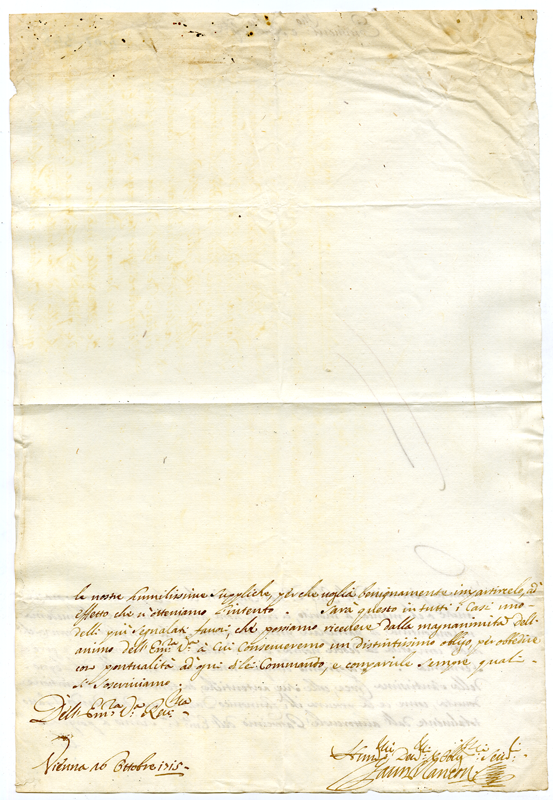 le nostre humilissime supliche, perche voglia benignamente impartircelo, ad
effetto che n'otteniamo l'intento. Sarà questo in tutti i Casi uno
delli più segnalati favori, che possiamo ricevere dalla magnanimità dell'
animo dell'Emza Va à Cui Conserveremo un distintissimo obligo, per obbedire
con pontualità ad ogni di lei Commando, e comparirle sempre quali
ci soscriviamo.
Dell'Emza Va Revma
Vienna 16 Ottobre 1715